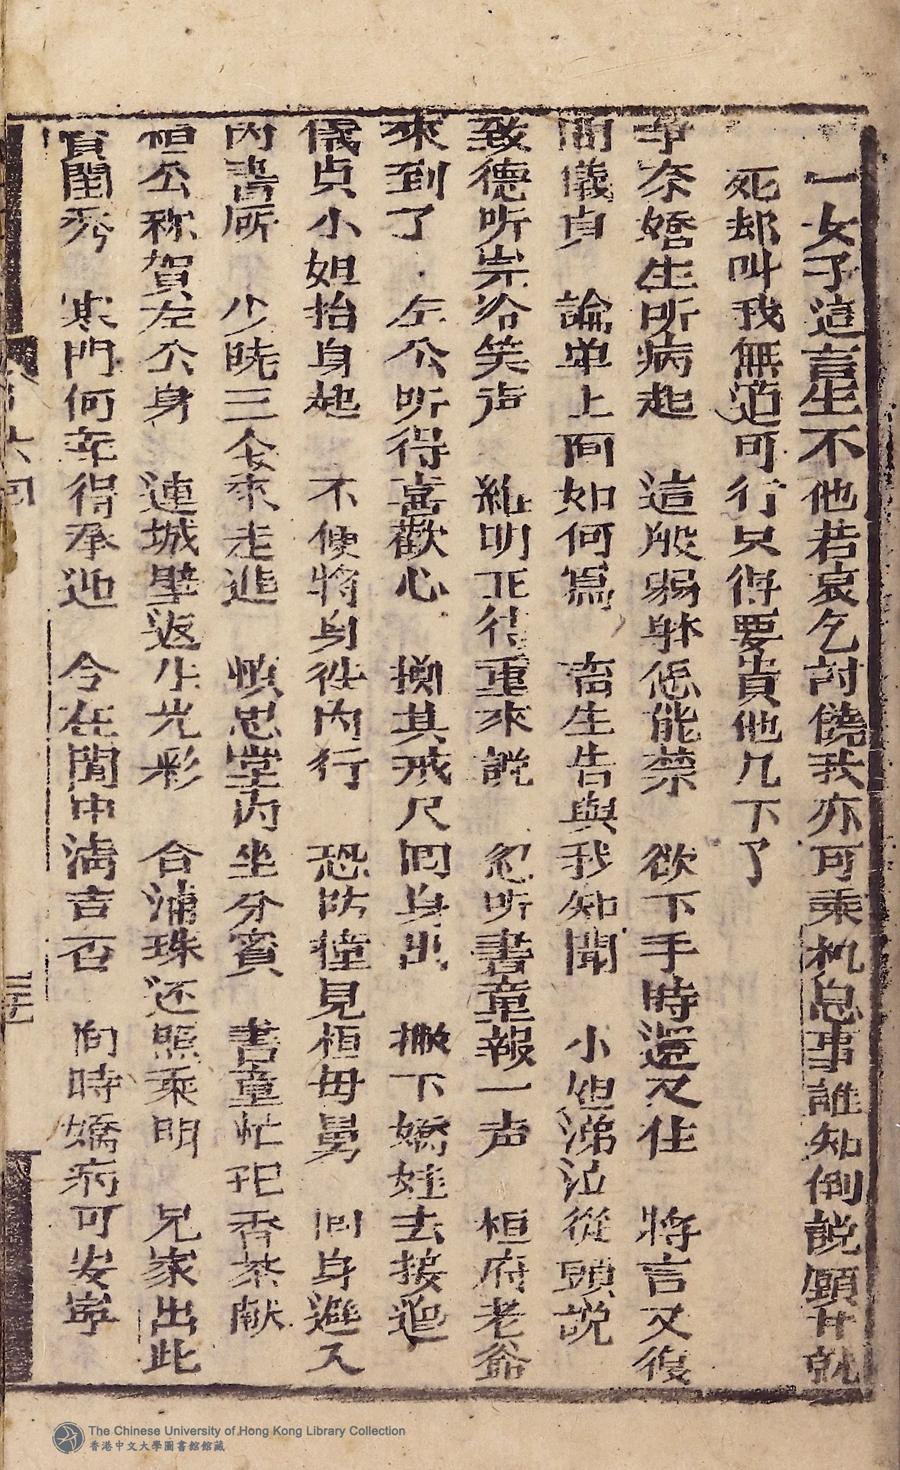 一女子這言生不他若哀乞討饒我亦可乘机息事誰知倒説願甘就
死却叫我無道可行只得要責他几下了
爭奈嬌生所病起　這般弱躰恁能禁　欲下手時還又住　將言又復
問儀貞　論单上面如何寫　畜生告與我知聞　小姐涕泣從頭説
致德听岽冷笑声　維明正待重來説　忽听書童報一声　桓府老爺
來到了　左公听得喜歡心　擲其戒尺回身出　撇下嬌娃去接迎
儀贞小姐抬身起　不便將身徃内行　恐防撞見桓母舅　回身避入
内書㕔　少時三人來走進　慎思堂内坐分賓　書童忙把香茶献
桓公称賀左公身　連城璧返生光彩　合浦珠还照乘明　兄家出此
賢閨秀　寒門何幸得承迎　今在閨中淸吉否　向時嬌病可安寧
六回
The Chinese University of Hong Kong Library Collection
香港中文大學圖書館館藏